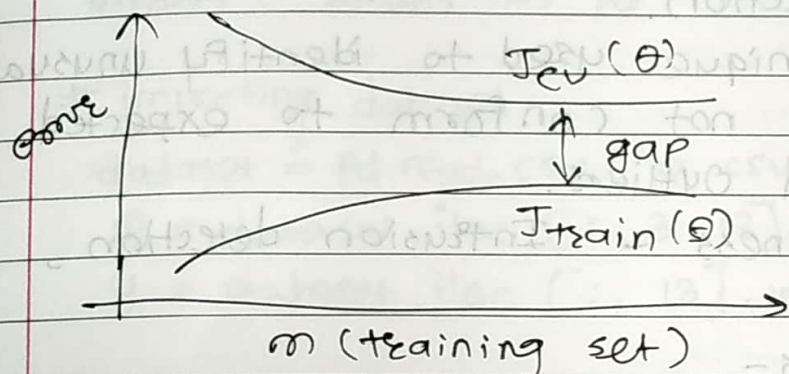 J_cv(θ)
gap
J_train(θ)
m (training set)